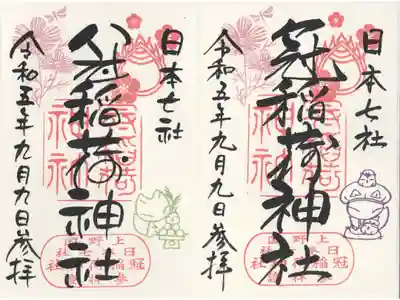 日本七社
冠稲荷神社
令和五年九月九日参拝
日本七社
冠稲荷神社
令和五年九月九日参拝